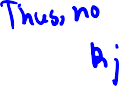 Thus, no
Rj